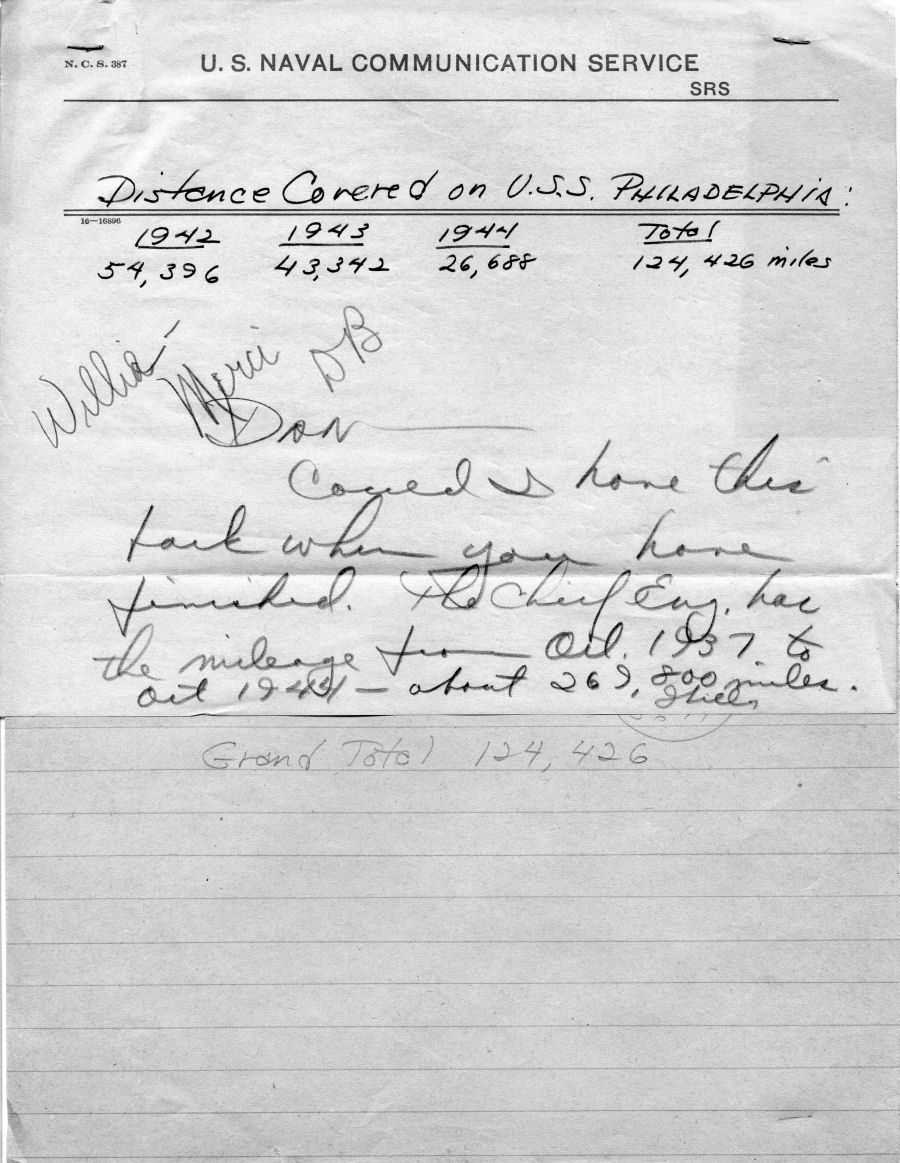 N. C. S. 387
U. S. NAVAL COMMUNICATION SERVICE
SRS
Distance Covered on U.S.S. PHILADELPHIA:
16—16896
1942 1943 1944 Total
54,396 43,342 26,688 124,426 miles
Willia
Merci DB
Don
Could I have this
back when you have
finished. The Chief Eng. has
the mileage from Oct. 1937 to
Oct 1944 — about 269,800 miles.
Grand Total 124,426